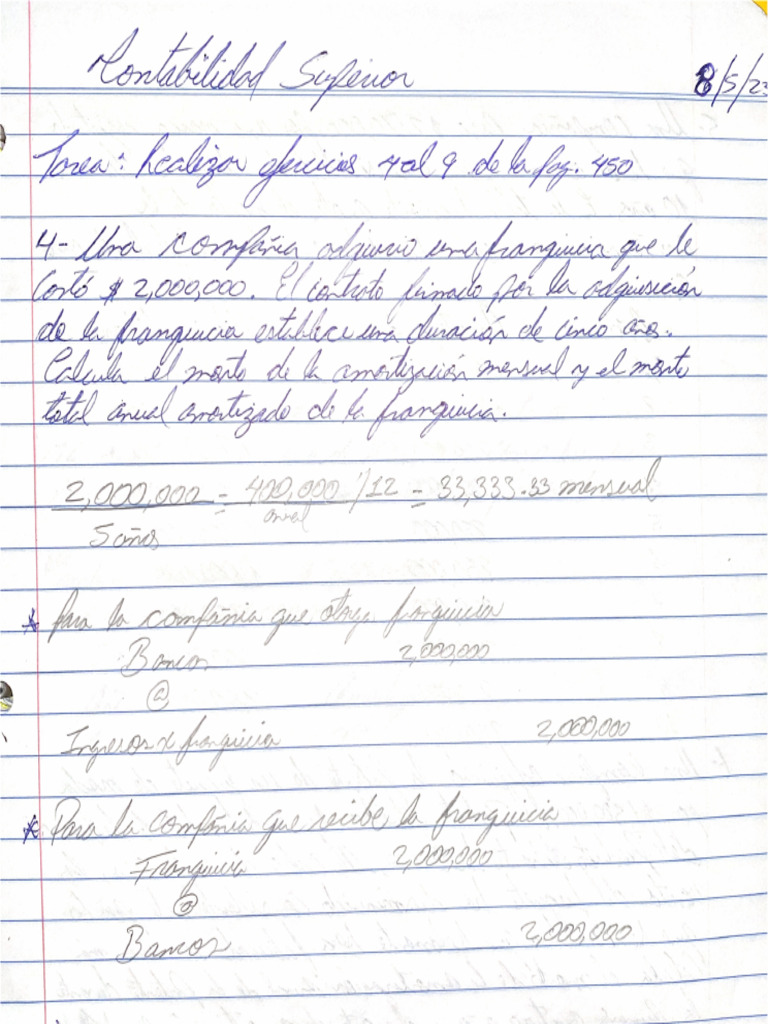 Contabilidad Superior 8/5/23
Tarea: Realizar ejercicios 4 al 9 de la pag. 450
4- Una compañia adquirio una franquicia que le
Costó $ 2,000,000. El contrato firmado por la adquisición
de la franquicia establece una duración de cinco años.
Calcula el monto de la amortización mensual y el monto
total anual amortizado de la franquicia.
2,000,000 = 400,000 /12 = 33,333.33 mensual
5 años anual
* Para la compañia que otorga franquicia
Bancos 2,000,000
@
Ingresos x franquicia 2,000,000
* Para la compañia que recibe la franquicia
Franquicia 2,000,000
@
Bancos 2,000,000